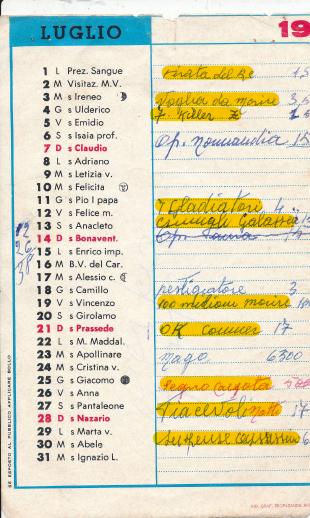 LUGLIO 19
1 L Prez. Sangue
2 M Visitaz. M.V.
3 M s Ireneo
4 G s Ulderico
5 V s Emidio
6 S s Isaia prof.
7 D s Claudio
8 L s Adriano
9 M s Letizia v.
10 M s Felicita
11 G s Pio I papa
12 V s Felice m.
13 S s Anacleto
14 D s Bonavent.
15 L s Enrico imp.
16 M B.V. del Car.
17 M s Alessio c.
18 G s Camillo
19 V s Vincenzo
20 S s Girolamo
21 D s Prassede
22 L s M. Maddal.
23 M s Apollinare
24 M s Cristina v.
25 G s Giacomo
26 V s Anna
27 S s Pantaleone
28 D s Nazario
29 L s Marta v.
30 M s Abele
31 M s Ignazio L.
Voglia da morire
7. Killer Z
Op. Normandia 15
7 Gladiatori 4
Prestigiatore 3
100 milioni
OK Connery 17
Mago 6300
SE ESPOSTO AL PUBBLICO APPLICARE BOLLO